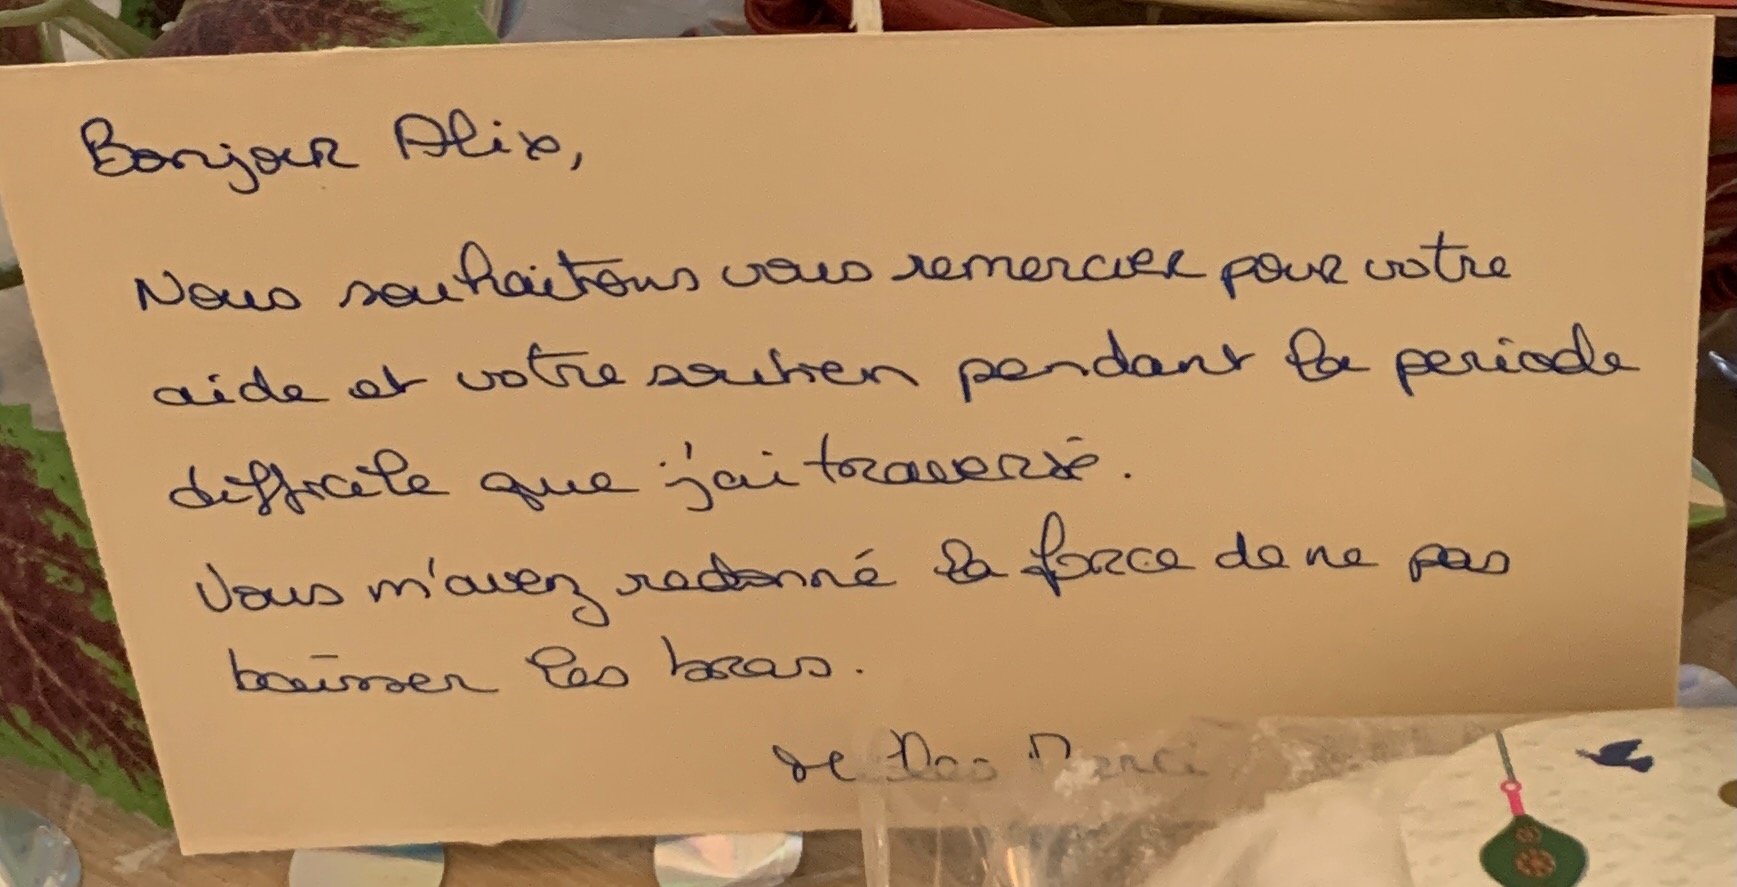 Bonjour Alix,
Nous souhaitons vous remercier pour votre
aide et votre soutien pendant la periode
difficile que j'ai traversé.
Vous m'avez redonné la force de ne pas
baisser les bras.
Merci